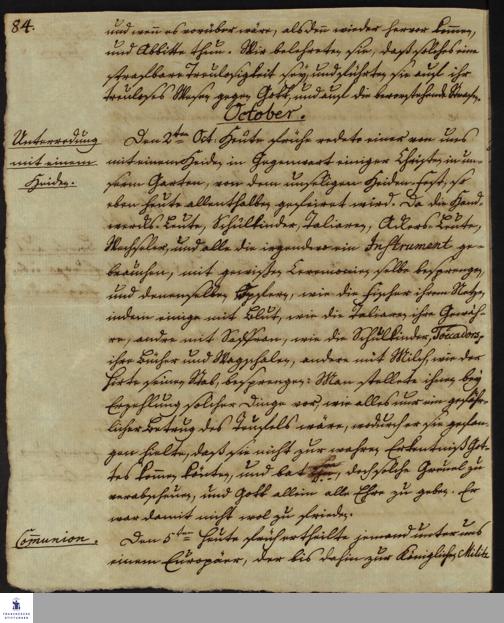 84.
und wenn es vorüber wäre, als denn wieder hervor kommen,
und Abbitte thun. Wir belehreten sie, daß solches eine
strafbare Treulosigkeit sey, und führten sie auf ihr
treuloses Wesen gegen Gott, und auf die bevorstehende Strafe.
October.
Unterredung
mit einem
Heiden.
Den 2ten Oct. Heute frühe redete einer von uns
mit einem Heiden in Gegenwart einiger Christen in un-
serm Garten, von dem unseligen Heiden-Fest, so
eben heute allenthalben gefeiret wird. Da die Hand-
wercks-Leute, Schulkinder, Taliaren, Ackers-Leute,
Wechsler, und alle die irgendwo ein Instrument ge-
brauchen, mit gewissen Ceremonien selbe besprengen,
und denenselben opfern, wie die Fischer ihrem Netze,
indem einige mit Blut, wie die Taliaren ihre Gewäh-
re, andre mit Saffran, wie die Schulkinder,
ihre Bücher und Wagschalen, andere mit Milch, wie der
Hirte seinen Stab, besprengen: Man stellete ihnen bey
Erzehlung solcher Dinge vor, wie alles nur ein gefähr-
licher Betrug des Teufels wäre, wodurch er sie gefan-
gen hielte, daß sie nicht zur wahren Erkentniß Got-
tes kommen könten, und bat doch solche Greuel zu
verabscheuen, und Gott allein alle Ehre zu geben. Er
war damit nicht wol zu frieden.
Communion.
Den 5ten Heute früh ertheilte jemand unter uns
einem Europäer, der bis dahin zur Königlichen Militz
FRANCKESCHE
STIFTUNGEN